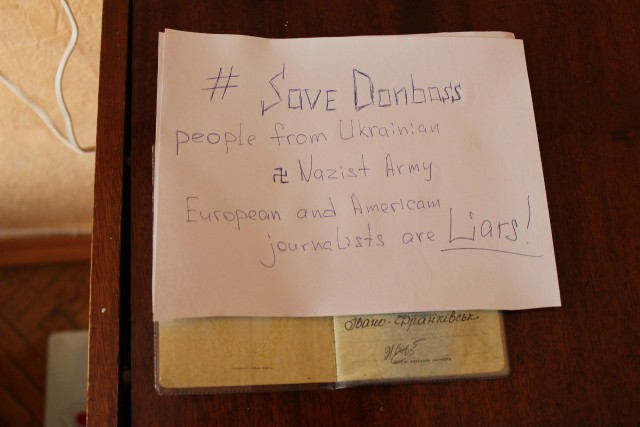 # Save Donbass
people from Ukrainian
卍 Nazist Army
European and American
journalists are Liars!
Івано-Франківськ